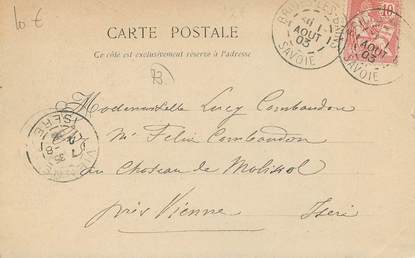 10 €
CARTE POSTALE
Ce côté est exclusivement réservé à l'adresse
73
BRIDES-LES-BAINS
AOUT
03
SAVOIE
AOUT
03
SAVOIE
10
Mademoiselle Lucy Combaudon
Mr Félix Combaudon
au Chateau de Malissol
près Vienne
Isère
ISERE